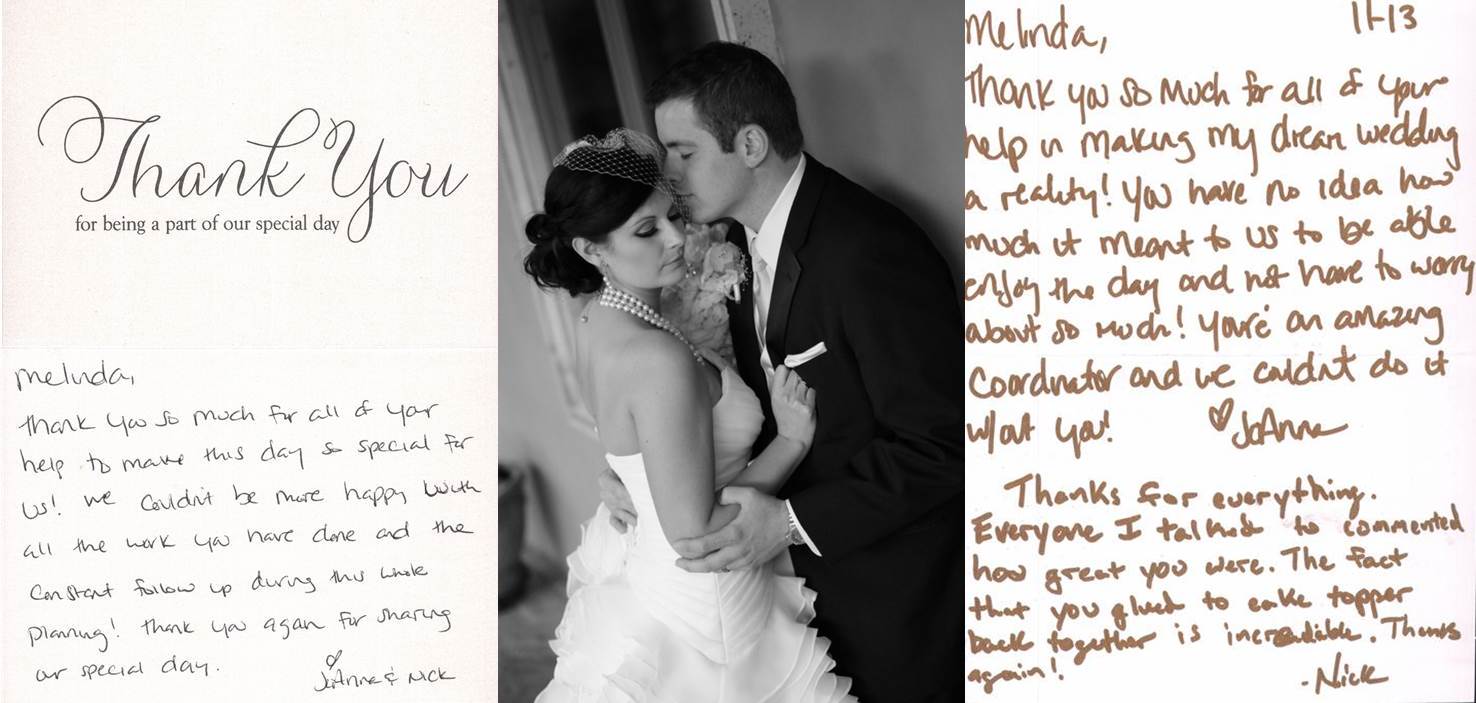 Thank You
for being a part of our special day
Melinda,
Thank you so much for all of your
help to make this day so special for
us! We couldn't be more happy with
all the work you have done and the
constant follow up during this whole
planning! Thank you again for sharing
our special day.
♡
JoAnne & Nick
Melinda, 11-13
Thank you so much for all of your
help in making my dream wedding
a reality! You have no idea how
much it meant to us to be able
enjoy the day and not have to worry
about so much! You're an amazing
coordinator and we couldn't do it
w/out you! ♡ JoAnne
Thanks for everything.
Everyone I talked to commented
how great you were. The fact
that you glued to cake topper
back together is incredible. Thanks
again!
- Nick